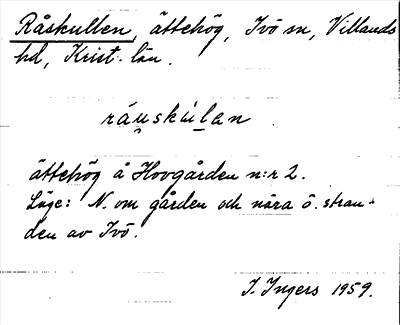 Råskullen, ättehög, Ivö sn, Villands
hd, Krist. län.
råu̯skúlan
ättehög å Hovgården n:r 2.
Läge: N. om gården och nära ö. stran-
den av Ivö.
I. Ingers 1959.